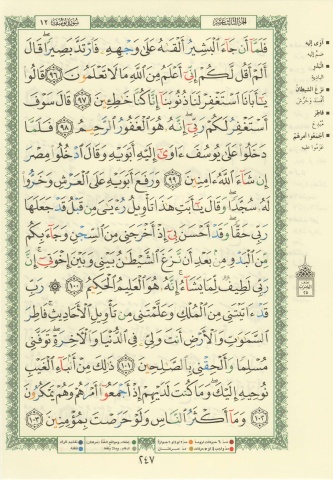 سورة يوسف ١٢
الجزء الثالث عشر
فَلَمَّآ أَن جَآءَ ٱلْبَشِيرُ أَلْقَىٰهُ عَلَىٰ وَجْهِهِۦ فَٱرْتَدَّ بَصِيرًا ۖ قَالَ
أَلَمْ أَقُل لَّكُمْ إِنِّىٓ أَعْلَمُ مِنَ ٱللَّهِ مَا لَا تَعْلَمُونَ ﴿٩٦﴾ قَالُوا۟
يَـٰٓأَبَانَا ٱسْتَغْفِرْ لَنَا ذُنُوبَنَآ إِنَّا كُنَّا خَـٰطِـِٔينَ ﴿٩٧﴾ قَالَ سَوْفَ
أَسْتَغْفِرُ لَكُمْ رَبِّىٓ ۖ إِنَّهُۥ هُوَ ٱلْغَفُورُ ٱلرَّحِيمُ ﴿٩٨﴾ فَلَمَّا
دَخَلُوا۟ عَلَىٰ يُوسُفَ ءَاوَىٰٓ إِلَيْهِ أَبَوَيْهِ وَقَالَ ٱدْخُلُوا۟ مِصْرَ
إِن شَآءَ ٱللَّهُ ءَامِنِينَ ﴿٩٩﴾ وَرَفَعَ أَبَوَيْهِ عَلَى ٱلْعَرْشِ وَخَرُّوا۟
لَهُۥ سُجَّدًا ۖ وَقَالَ يَـٰٓأَبَتِ هَـٰذَا تَأْوِيلُ رُءْيَـٰىَ مِن قَبْلُ قَدْ جَعَلَهَا
رَبِّى حَقًّا ۖ وَقَدْ أَحْسَنَ بِىٓ إِذْ أَخْرَجَنِى مِنَ ٱلسِّجْنِ وَجَآءَ بِكُم
مِّنَ ٱلْبَدْوِ مِنۢ بَعْدِ أَن نَّزَغَ ٱلشَّيْطَـٰنُ بَيْنِى وَبَيْنَ إِخْوَتِىٓ ۚ إِنَّ
رَبِّى لَطِيفٌ لِّمَا يَشَآءُ ۚ إِنَّهُۥ هُوَ ٱلْعَلِيمُ ٱلْحَكِيمُ ﴿١٠٠﴾ ۞ رَبِّ
قَدْ ءَاتَيْتَنِى مِنَ ٱلْمُلْكِ وَعَلَّمْتَنِى مِن تَأْوِيلِ ٱلْأَحَادِيثِ ۚ فَاطِرَ
ٱلسَّمَـٰوَٰتِ وَٱلْأَرْضِ أَنتَ وَلِىِّۦ فِى ٱلدُّنْيَا وَٱلْـَٔاخِرَةِ ۖ تَوَفَّنِى
مُسْلِمًا وَأَلْحِقْنِى بِٱلصَّـٰلِحِينَ ﴿١٠١﴾ ذَٰلِكَ مِنْ أَنۢبَآءِ ٱلْغَيْبِ
نُوحِيهِ إِلَيْكَ ۖ وَمَا كُنتَ لَدَيْهِمْ إِذْ أَجْمَعُوٓا۟ أَمْرَهُمْ وَهُمْ يَمْكُرُونَ
﴿١٠٢﴾ وَمَآ أَكْثَرُ ٱلنَّاسِ وَلَوْ حَرَصْتَ بِمُؤْمِنِينَ ﴿١٠٣﴾
آوى إليه
ضم إليه
البدو
البادية
نزغ الشيطان
أفسد وحرّش
فاطر
مبدع
أجمعوا أمرهم
عزموا عليه
٢٤٧